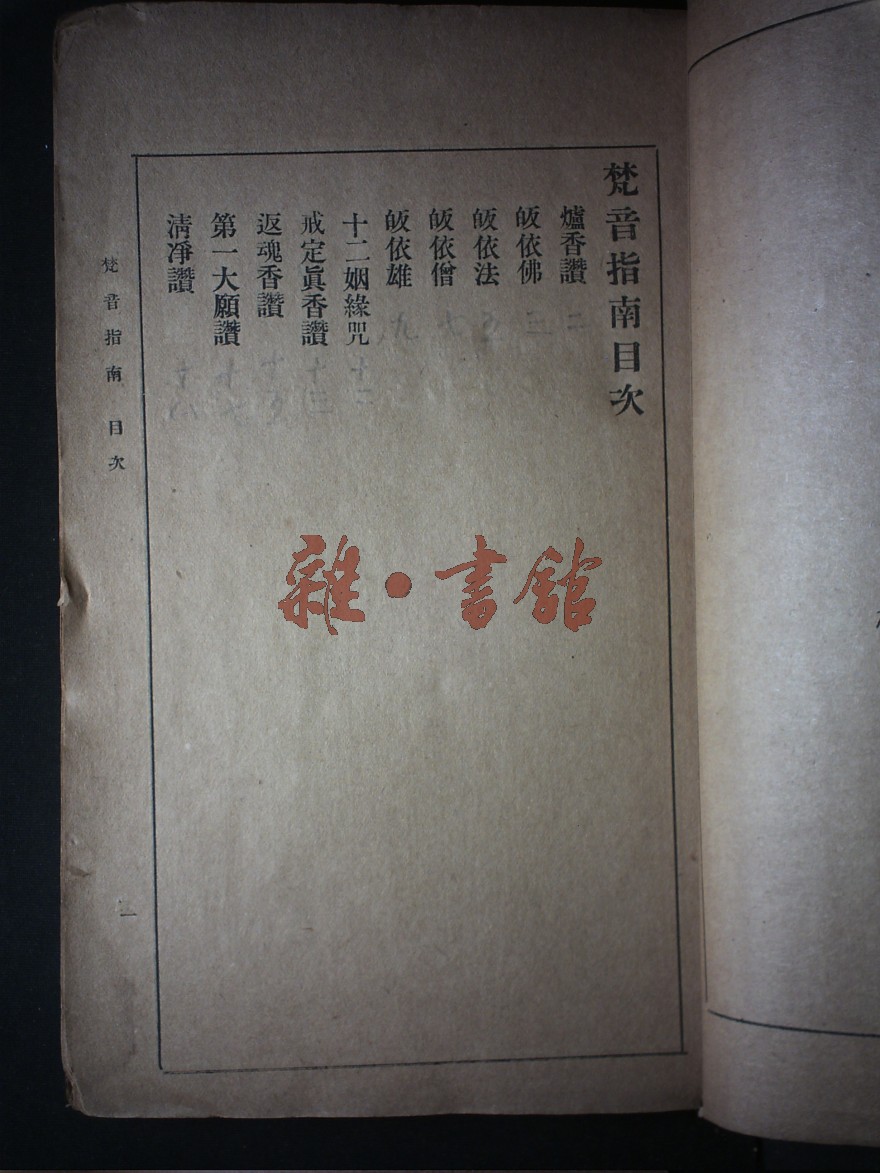 梵音指南目次
爐香讚
皈依佛
皈依法
皈依僧
皈依雄
十二姻緣咒
戒定眞香讚
返魂香讚
第一大願讚
淸淨讚
梵音指南 目次
一
雜•書館